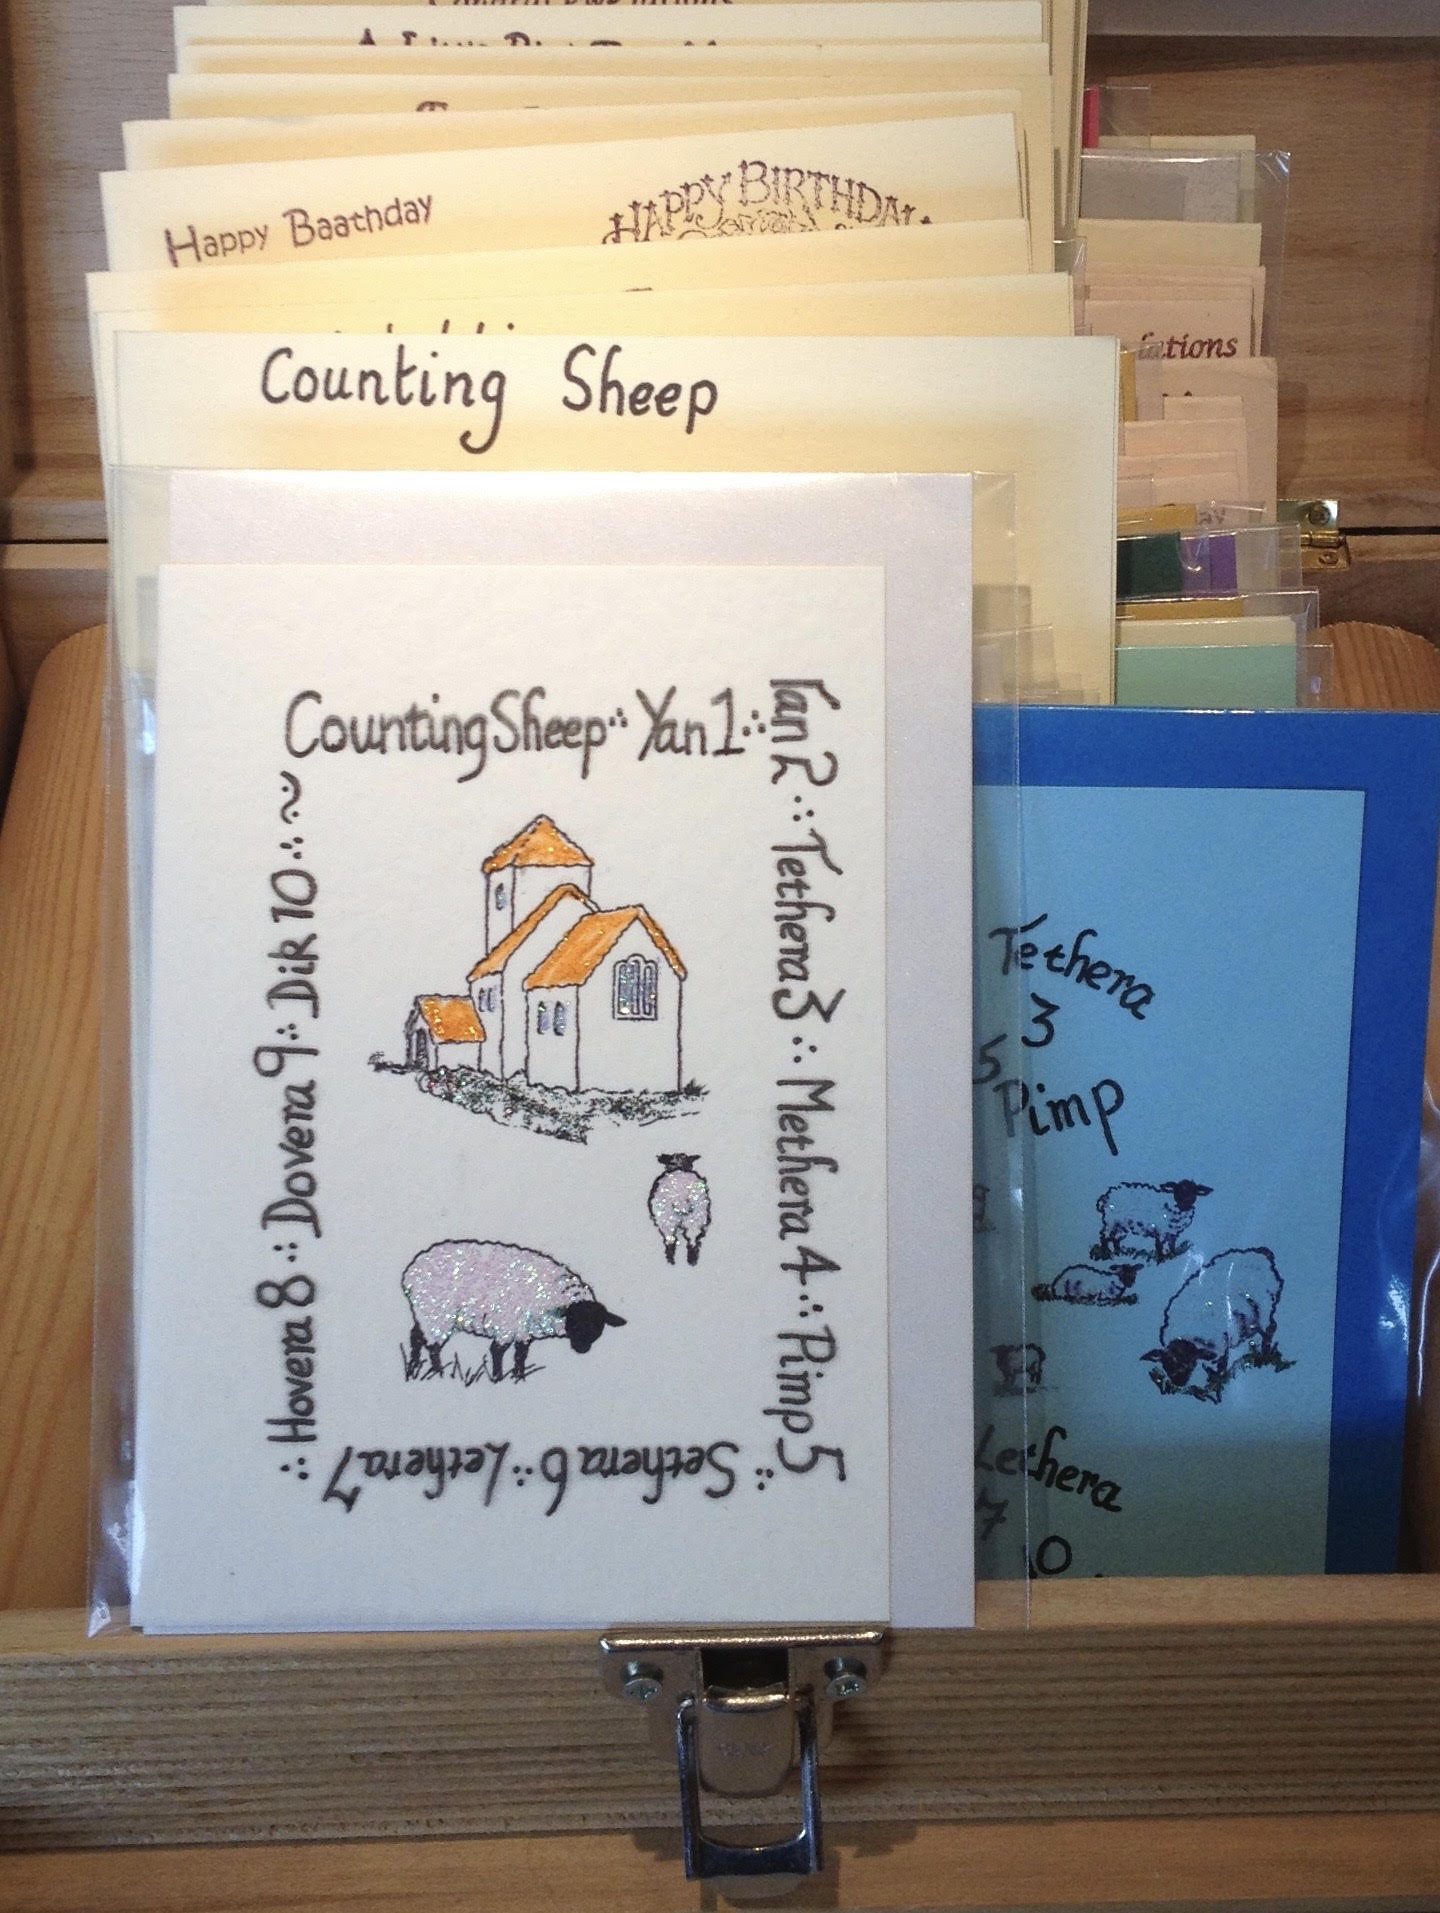 Happy Baathday
HAPPY BIRTHDAY
Counting Sheep
Counting Sheep ∴ Yan 1 ∴
Tan 2 ∴ Tethera 3 ∴ Methera 4 ∴ Pimp 5
∴ Sethera 6 ∴ Lethera 7
∴ Hovera 8 ∴ Dovera 9 ∴ Dik 10 ∴ ~
Tethera
3
5
Pimp
Lethera
7
10